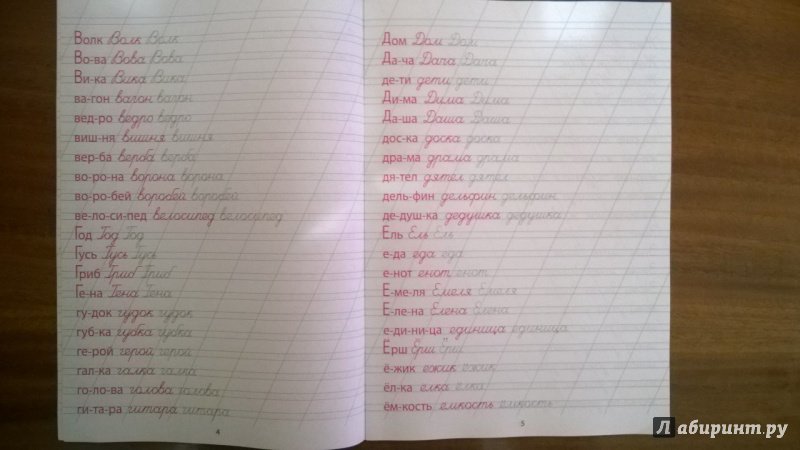 Волк Волк Волк
Во-ва Вова Вова
Ви-ка Вика Вика
ва-гон вагон вагон
вед-ро ведро ведро
виш-ня вишня вишня
вер-ба верба верба
во-ро-на ворона ворона
во-ро-бей воробей воробей
ве-ло-си-пед велосипед велосипед
Год Год Год
Гусь Гусь Гусь
Гриб Гриб Гриб
Ге-на Гена Гена
гу-док гудок гудок
губ-ка губка губка
ге-рой герой герой
гал-ка галка галка
го-ло-ва голова голова
ги-та-ра гитара гитара
4
Дом Дом Дом
Да-ча Дача Дача
де-ти дети дети
Ди-ма Дима Дима
Да-ша Даша Даша
дос-ка доска доска
дра-ма драма драма
дя-тел дятел дятел
дель-фин дельфин дельфин
де-душ-ка дедушка дедушка
Ель Ель Ель
е-да еда еда
е-нот енот енот
Е-ме-ля Емеля Емеля
Е-ле-на Елена Елена
е-ди-ни-ца единица единица
Ёрш Ёрш Ёрш
ё-жик ёжик ёжик
ёл-ка ёлка ёлка
ём-кость ёмкость ёмкость
5
Лабиринт.ру